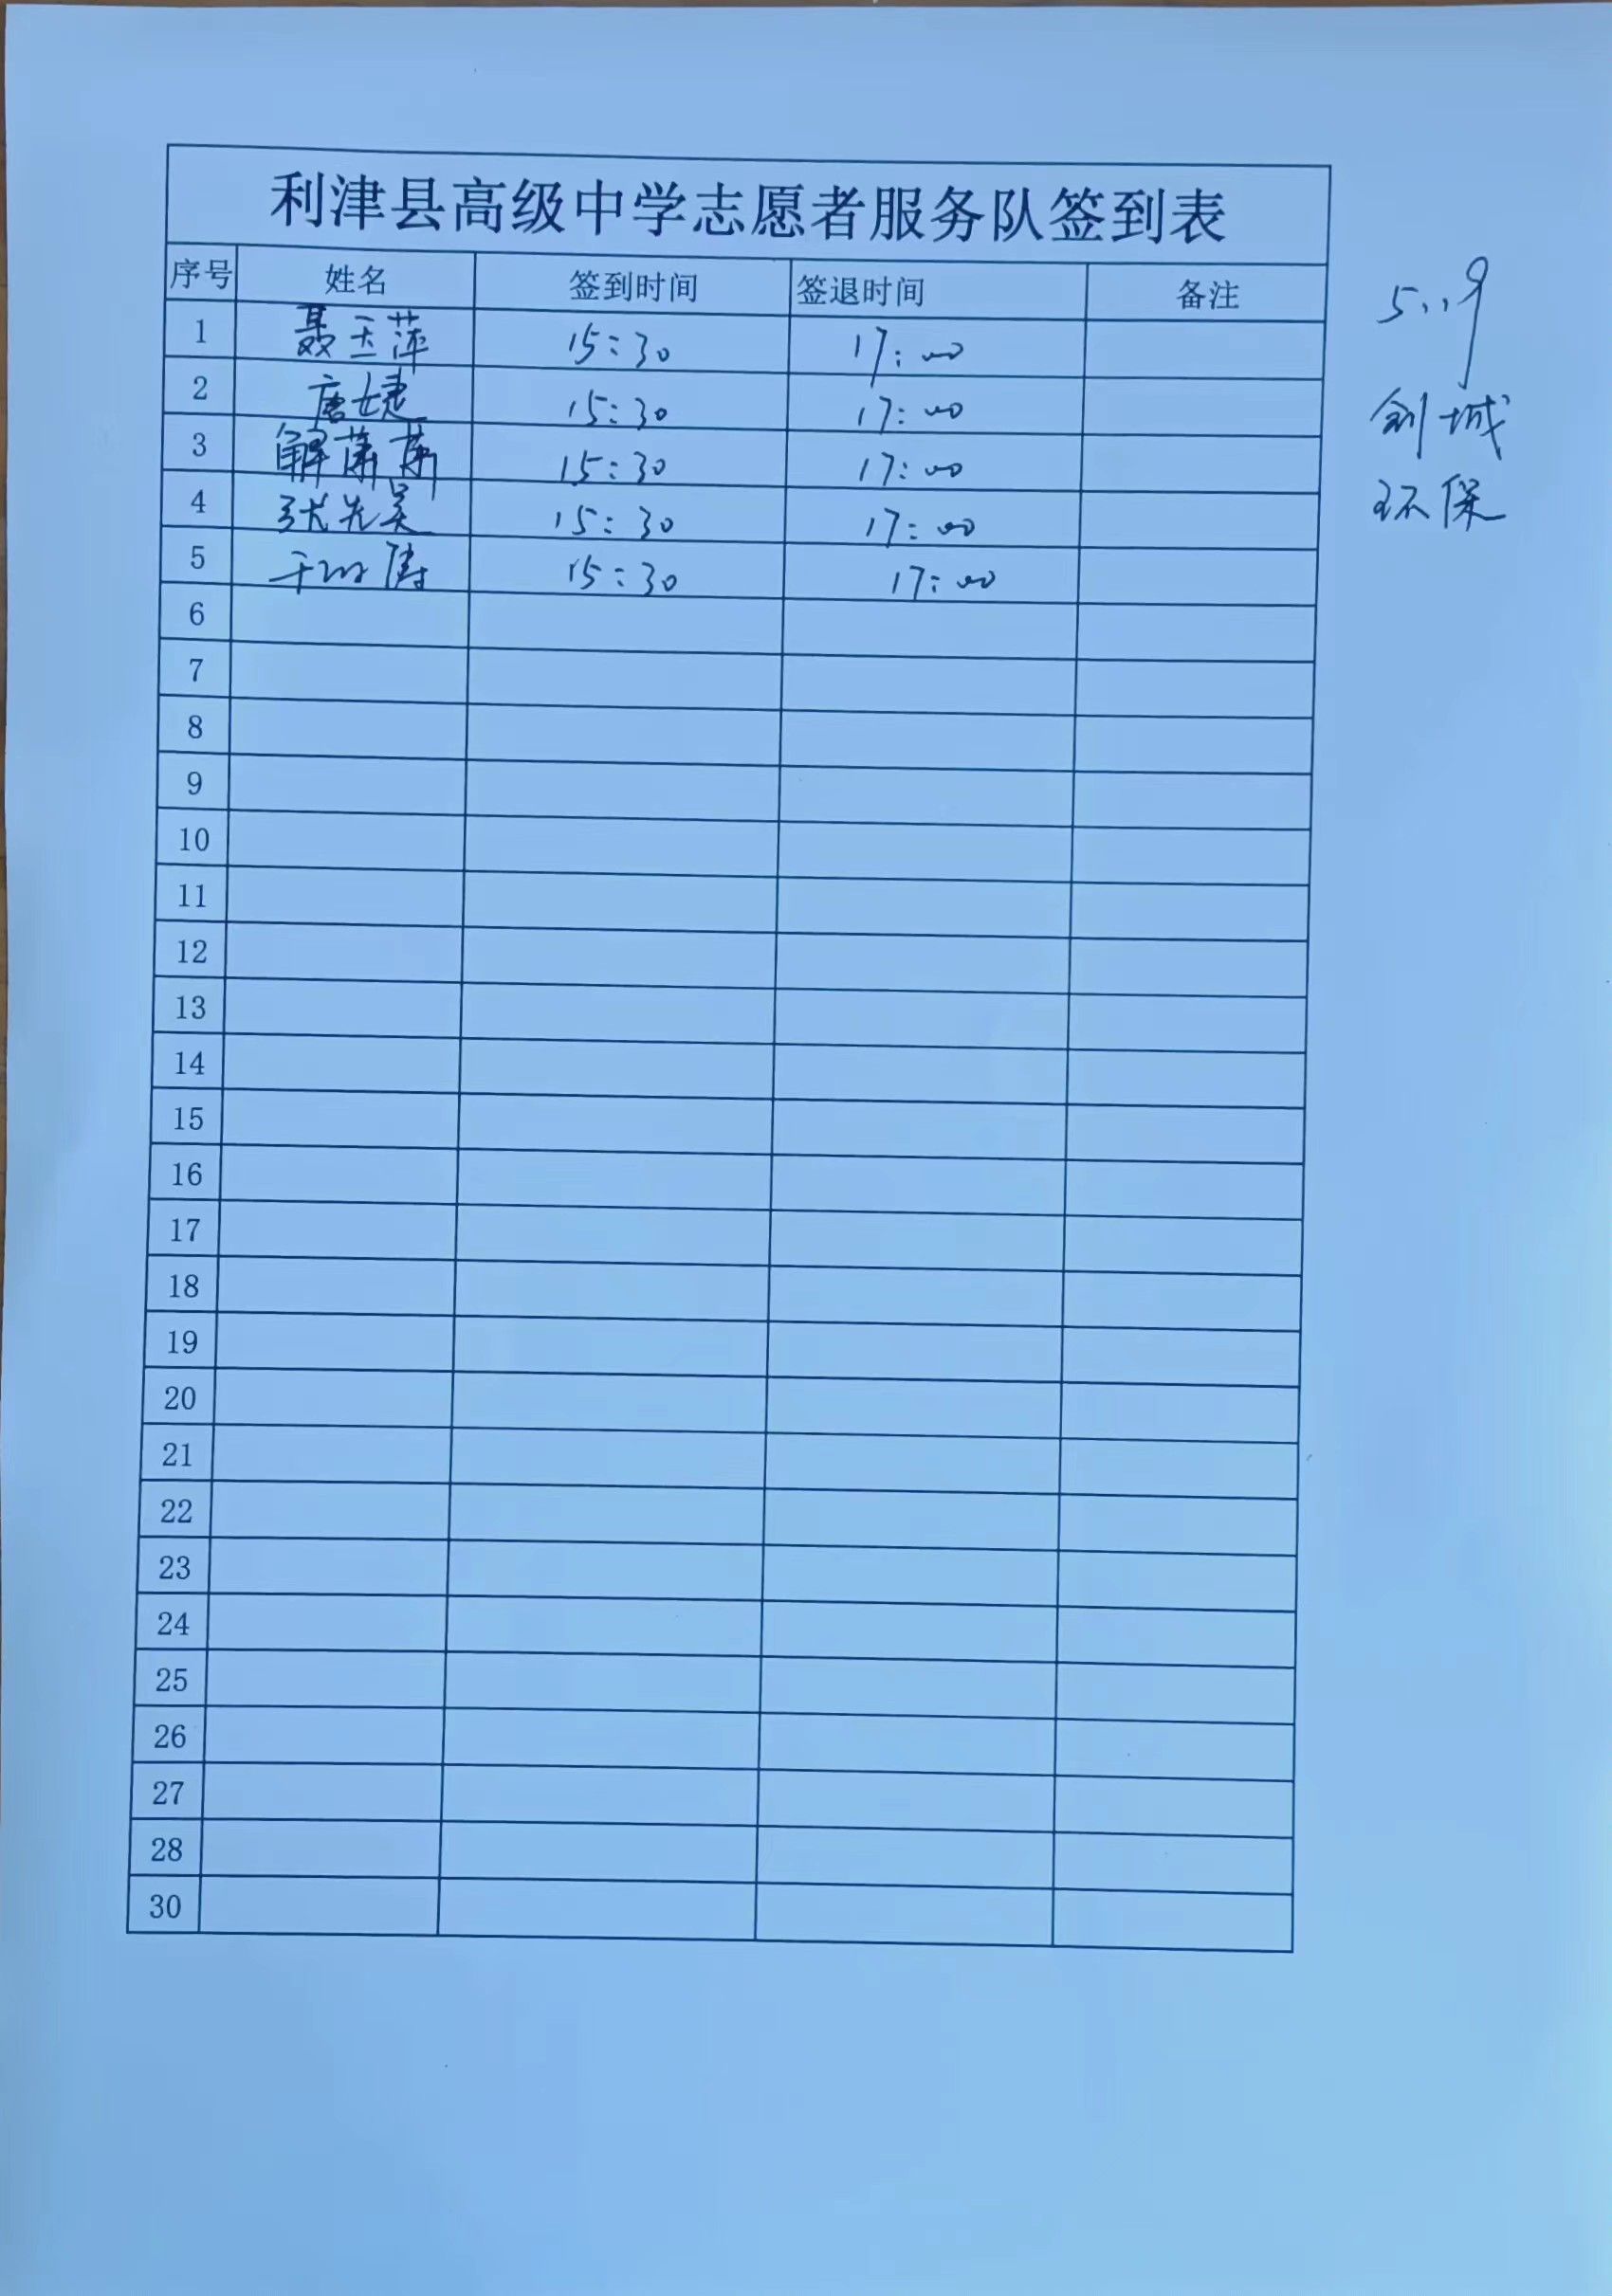 利津县高级中学志愿者服务队签到表
序号 姓名 签到时间 签退时间 备注
1 聂玉萍 15:30 17:00
2 唐婕 15:30 17:00
3 解萧萧 15:30 17:00
4 张光美 15:30 17:00
5 15:30 17:00
6
7
8
9
10
11
12
13
14
15
16
17
18
19
20
21
22
23
24
25
26
27
28
30
创城
环保